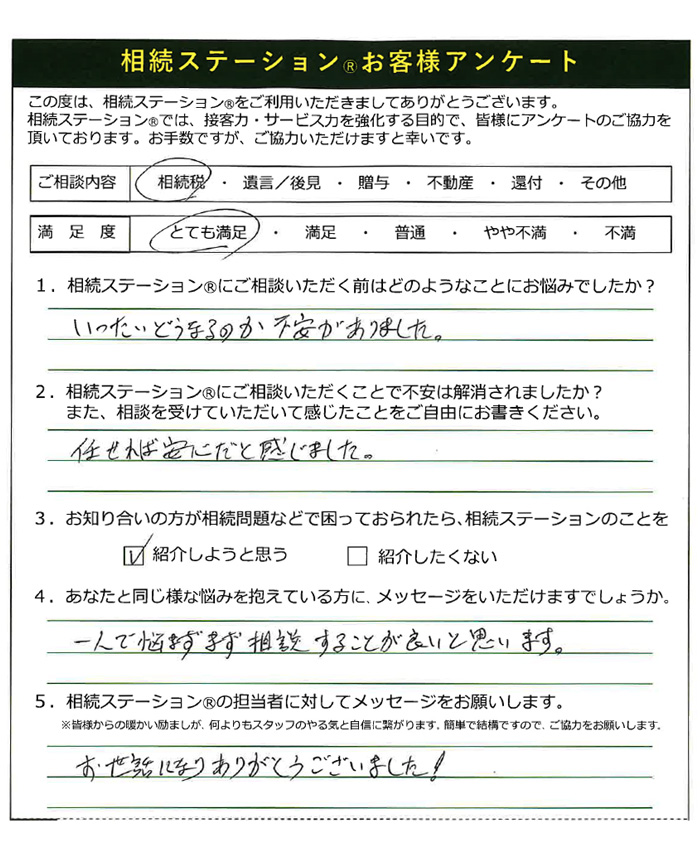 相続ステーション®お客様アンケート
この度は、相続ステーション®をご利用いただきましてありがとうございます。
相続ステーション®では、接客力・サービス力を強化する目的で、皆様にアンケートのご協力を
頂いております。お手数ですが、ご協力いただけますと幸いです。
ご相談内容 相続税 ・ 遺言／後見 ・ 贈与 ・ 不動産 ・ 還付 ・ その他
満足度 とても満足 ・ 満足 ・ 普通 ・ やや不満 ・ 不満
1．相続ステーション®にご相談いただく前はどのようなことにお悩みでしたか？
いったいどうなるのか不安がありました。
2．相続ステーション®にご相談いただくことで不安は解消されましたか？
また、相談を受けていただいて感じたことをご自由にお書きください。
任せれば安心だと感じました。
3．お知り合いの方が相続問題などで困っておられたら、相続ステーションのことを
☑ 紹介しようと思う □ 紹介したくない
4．あなたと同じ様な悩みを抱えている方に、メッセージをいただけますでしょうか。
一人で悩まずまず相談することが良いと思います。
5．相続ステーション®の担当者に対してメッセージをお願いします。
※皆様からの暖かい励ましが、何よりもスタッフのやる気と自信に繋がります。簡単で結構ですので、ご協力をお願いします。
お世話になりありがとうございました！